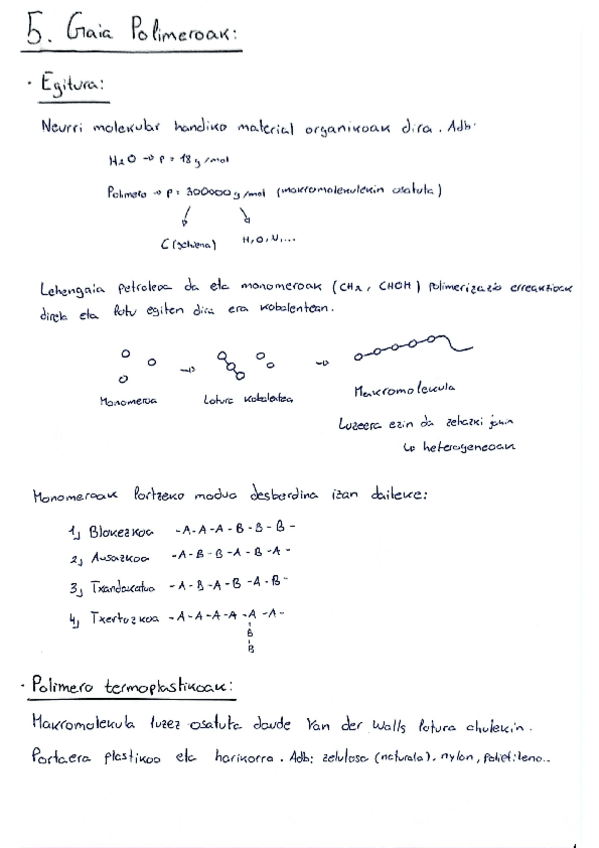 5. Gaia Polimeroak:
· Egitura:
Neurri molekular handiko material organikoak dira. Adb:
H2O → P = 18 g/mol
Polimero → P: 300000 g/mol (makromolekulekin osatuta)
C H, O, N,...
Lehengaia petroleoa da eta monomeroak (CH2, CHOH) polimerizazio erreakzioak
direla eta lotu egiten dira era kobalentean.
→ →
Monomeroa Lotura kobalentea Makromolekula
Luzeera ezin da zehazki jakin
↳ heterogeneoak
Monomeroak lortzeko modua desberdina izan daiteke:
1) Blokezkoa -A-A-A-B-B-B-
2) Ausazkoa -A-B-B-A-B-A-
3) Txandakatua -A-B-A-B-A-B-
4) Txertozkoa -A-A-A-A-A-A-
B
B
· Polimero termoplastikoak:
Makromolekula luzez osatuta daude Van der Walls lotura ahulekin.
Portaera plastikoa eta harikorra. Adb: zelulosa (naturala), nylon, polietileno...